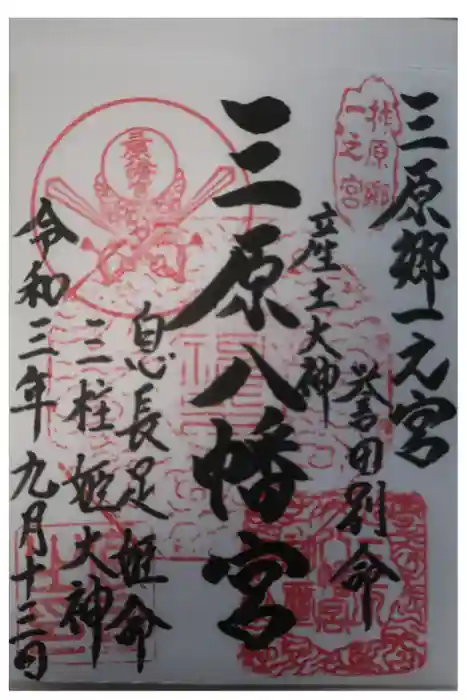 三原郷一元宮
産土大神
誉田別命
三原八幡宮
息長足姫命
三柱姫大神
令和三年九月十三日
三原郷
一之宮
三原八幡宮